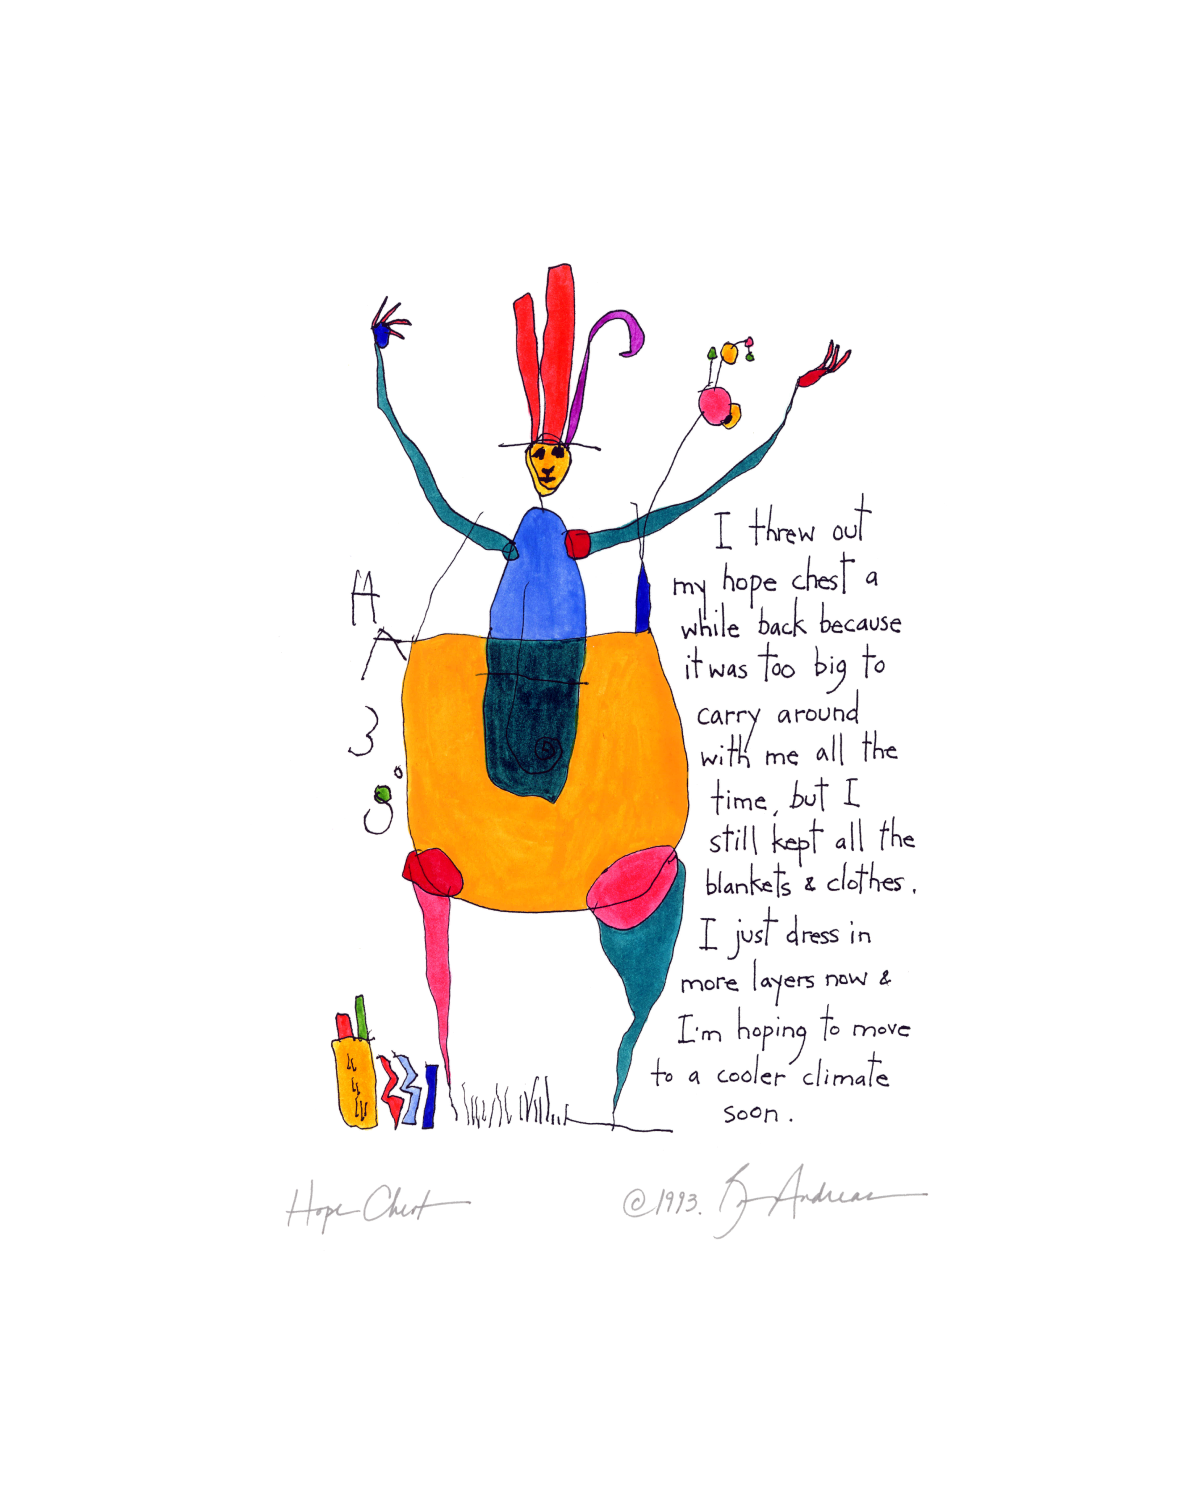 I threw out
my hope chest a
while back because
it was too big to
carry around
with me all the
time, but I
still kept all the
blankets & clothes.
I just dress in
more layers now &
I'm hoping to move
to a cooler climate
soon.
Hope Chest
©1993. Andreas